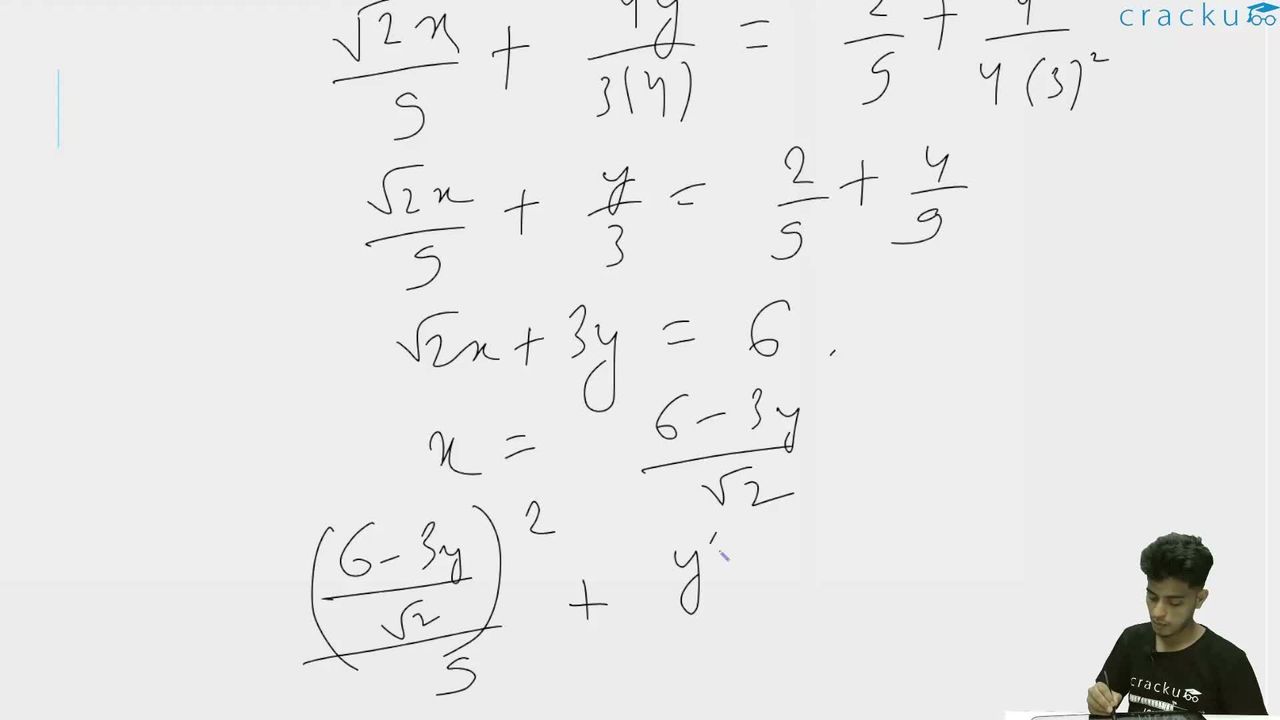 cracku
√2x/9 + 4y/3(4) = 2/9 + 4/4(3)²
√2x/9 + y/3 = 2/9 + 4/9
√2x + 3y = 6 .
x = (6 - 3y)/√2
((6 - 3y)/√2)²/9 + y'
cracku